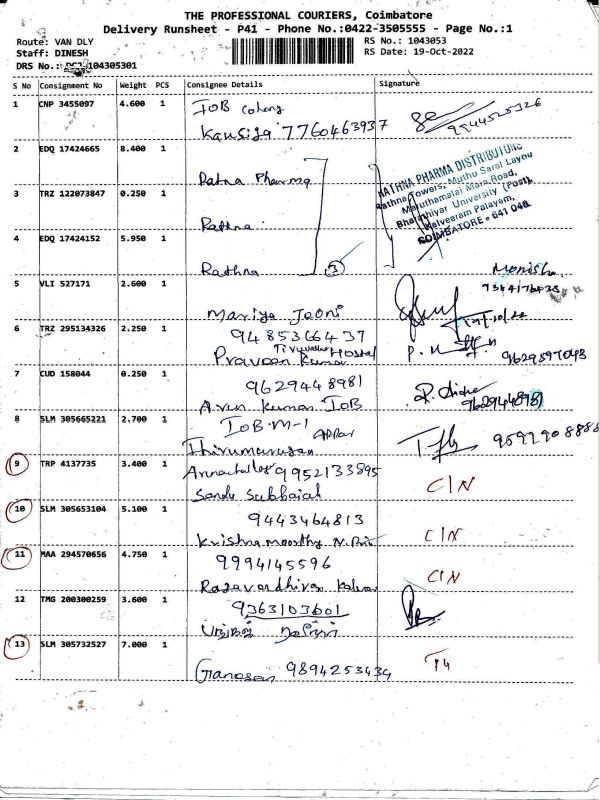 THE PROFESSIONAL COURIERS, Coimbatore
Delivery Runsheet - P41 - Phone No.:0422-3505555 - Page No.:1
Route: VAN DLY
RS No.: 1043053
Staff: DINESH
RS Date: 19-Oct-2022
DRS No.: 104305301
S No Consignment No Weight PCS Consignee Details Signature
1 CNP 3455097 4.600 1 IOB colony
Kausiga 7760463937 9944525326
2 EDQ 17424665 8.400 1
Ratna Pharma
RATHNA PHARMA DISTRIBUTORS
Rathna Towers, Muthu Sarai Layou
Maruthamalai Main Road,
Bharathiyar University (Post),
Kalveeram Palayam,
COIMBATORE - 641 046.
3 TRZ 122073847 0.250 1
Rathna
4 EDQ 17424152 5.950 1
Rathna 3
5 VLI 527171 2.600 1 Monisha
Mariya Jeoni
6 TRZ 295134326 2.250 1 9485366437
Praveen Kumar Hostel 9629597043
7 CUD 158044 0.250 1 9629448981
Arun Kumar IOB 9629448981
8 SLM 305665221 2.700 1 IOB.M-1
Thirumurugan
9 TRP 4137735 3.400 1 9952133895 C/N
Subbaiah
10 SLM 305653104 5.100 1 9443464813 C/N
Krishnamoorthy N.
11 MAA 294570656 4.750 1 9994145596 C/N
12 TMG 200300259 3.600 1 9363103601
13 SLM 305732527 7.000 1
Ganesan 9894253434